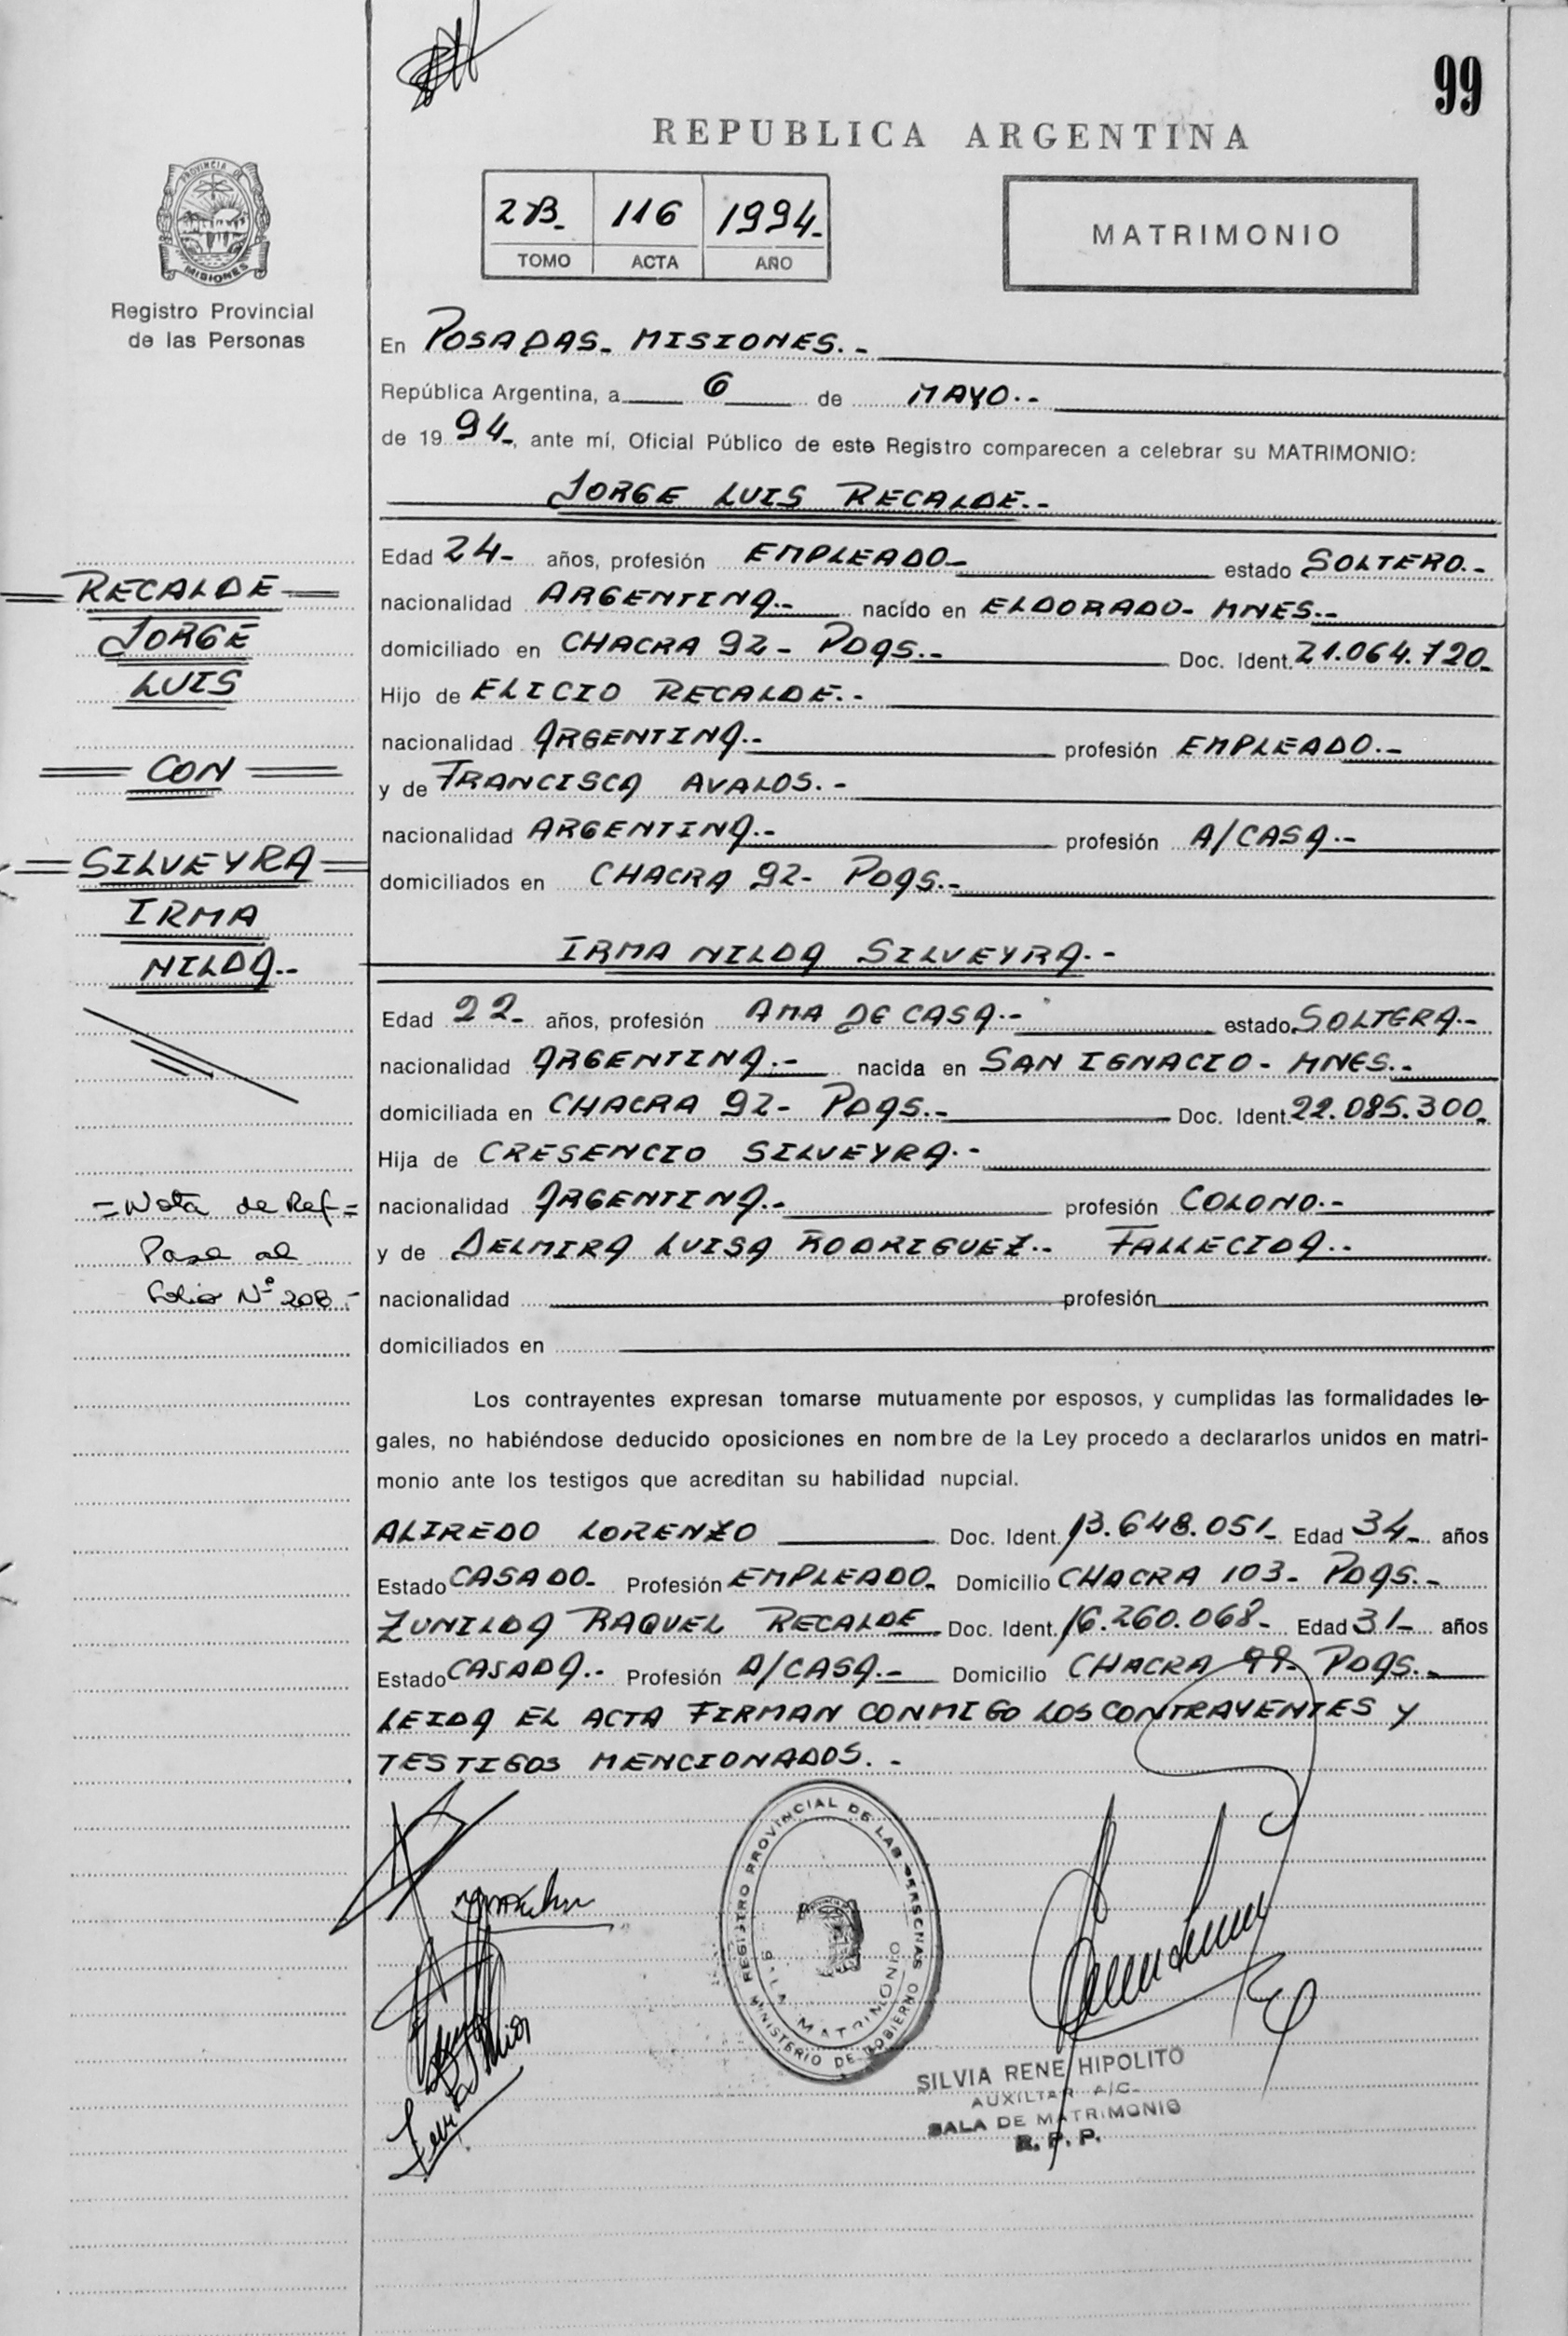 99
REPUBLICA ARGENTINA
2B- 116 1994-
TOMO ACTA AÑO
MATRIMONIO
PROVINCIA DE
MISIONES
Registro Provincial
de las Personas
En POSADAS- MISIONES.-
República Argentina, a 6 de MAYO.-
de 19 94-, ante mí, Oficial Público de este Registro comparecen a celebrar su MATRIMONIO:
JORGE LUIS RECALDE.-
Edad 24- años, profesión EMPLEADO- estado SOLTERO.-
nacionalidad ARGENTINA.- nacido en ELDORADO- MNES.-
domiciliado en CHACRA 92- PDAS.- Doc. Ident. 21.064.720-
Hijo de ELICIO RECALDE.-
nacionalidad ARGENTINA.- profesión EMPLEADO.-
y de FRANCISCA AVALOS.-
nacionalidad ARGENTINA.- profesión A/CASA.-
domiciliados en CHACRA 92- PDAS.-
IRMA NILDA SILVEYRA.-
Edad 22- años, profesión AMA DE CASA.- estado SOLTERA.-
nacionalidad ARGENTINA.- nacida en SAN IGNACIO- MNES.-
domiciliada en CHACRA 92- PDAS.- Doc. Ident. 22.085.300-
Hija de CRESENCIO SILVEYRA.-
nacionalidad ARGENTINA.- profesión COLONO.-
y de DELMIRA LUISA RODRIGUEZ.- FALLECIDA.-
nacionalidad profesión
domiciliados en
Los contrayentes expresan tomarse mutuamente por esposos, y cumplidas las formalidades le-
gales, no habiéndose deducido oposiciones en nombre de la Ley procedo a declararlos unidos en matri-
monio ante los testigos que acreditan su habilidad nupcial.
ALFREDO LORENZO Doc. Ident. 13.648.051- Edad 34- años
Estado CASADO- Profesión EMPLEADO- Domicilio CHACRA 103- PDAS.-
ZUNILDA RAQUEL RECALDE Doc. Ident. 16.260.068- Edad 31- años
Estado CASADA.- Profesión A/CASA.- Domicilio CHACRA 99- PDAS.-
LEIDA EL ACTA FIRMAN CONMIGO LOS CONTRAYENTES Y
TESTIGOS MENCIONADOS.-
RECALDE
JORGE
LUIS
CON
SILVEYRA
IRMA
NILDA.-
=Nota de Ref=
Pasa al
Folio Nº 208.-
REGISTRO PROVINCIAL DE LAS PERSONAS
MINISTERIO DE GOBIERNO
SALA MATRIMONIO
SILVIA RENE HIPOLITO
AUXILIAR A/C-
SALA DE MATRIMONIO
R. P. P.